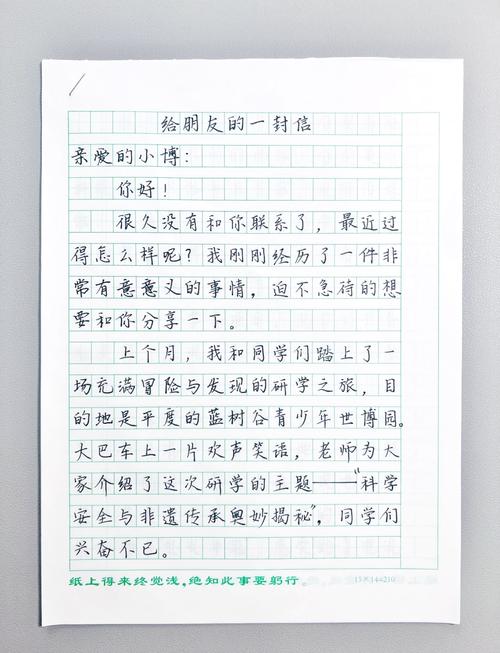 给朋友的一封信
亲爱的小博：
你好！
很久没有和你联系了，最近过
得怎么样呢？我刚刚经历了一件非
常有意意义的事情，迫不急待的想
要和你分享一下。
上个月，我和同学们踏上了一
场充满冒险与发现的研学之旅，目
的地是平度的蓝树谷青少年世博园。
大巴车上一片欢声笑语，老师为大
家介绍了这次研学的主题——“科学
安全与非遗传承奥妙揭秘”，同学们
兴奋不已。
纸上得来终觉浅，绝知此事要躬行。 15×14=210